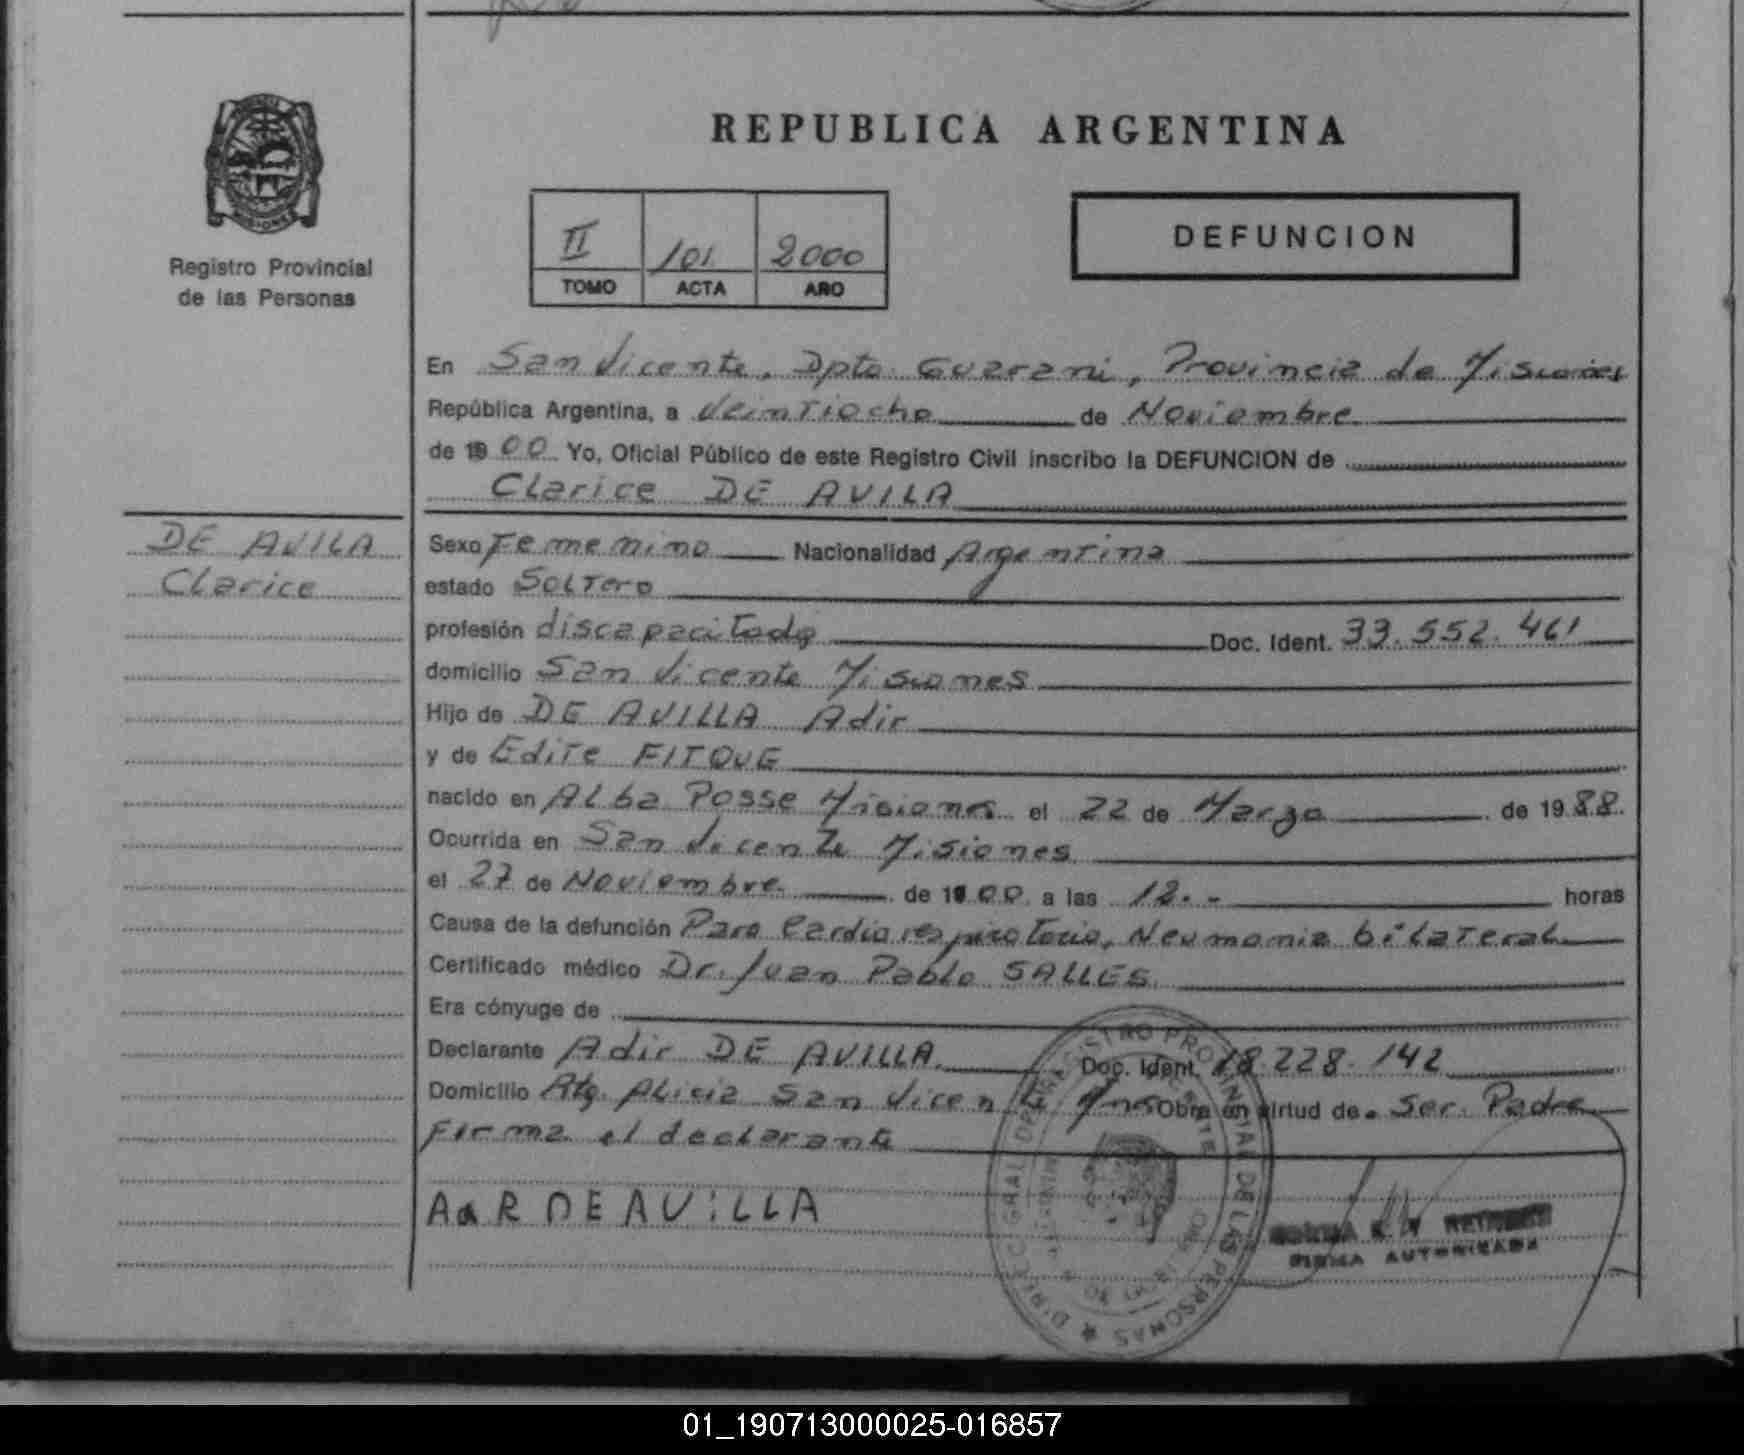 REPUBLICA ARGENTINA
II 101 2000
TOMO ACTA AÑO
DEFUNCION
Registro Provincial
de las Personas
En San Vicente, Dpto Guarani, Provincia de Misiones
República Argentina, a Veintiocho de Noviembre
de 19 00 Yo, Oficial Público de este Registro Civil inscribo la DEFUNCION de
Clarice DE AVILA
DE AVILA
Clarice
Sexo Femenino Nacionalidad Argentina
estado Soltero
profesión discapacitada Doc. Ident. 33.552.461
domicilio San Vicente Misiones
Hijo de DE AVILLA Adir
y de Edite FITQUE
nacido en Alba Posse Misiones el 22 de Marzo de 1988.
Ocurrida en San Vicente Misiones
el 27 de Noviembre de 19 00 a las 12.- horas
Causa de la defunción Paro Cardio respiratorio, Neumonia bilateral
Certificado médico Dr. Juan Pablo SALLES
Era cónyuge de
Declarante Adir DE AVILLA Doc. Ident. 18.228.142
Domicilio Alicia San Vicente Obra en virtud de Ser Padre
Firma el declarante
DE AVILLA
FIRMA AUTORIZADA
REGISTRO PROVINCIAL DE LAS PERSONAS
01_190713000025-016857